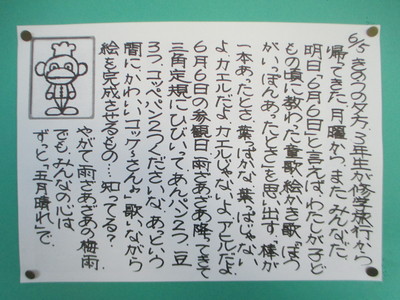 6/5 きのうの夕方、3年生が修学旅行から
帰ってきた。月曜から、また みんなだ。
明日「6月6日」と言えば、わたしが子ど
もの頃に教わった「童歌 絵かき歌」"ぼう
がいっぽんあったとさ"を思い出す。棒が
一本あったとさ、葉っぱかな、葉っぱじゃない
よ、カエルだよ、カエルじゃないよ、アヒルだよ
6月6日の参観日 雨ざあざあ降ってきて
三角定規にひびいって、あんパン2つ、豆
3つ、コッペパン2つくださいな、あっという
間に、かわいいコックさん♪ 歌いながら
絵を完成させるもの… 知ってる?
やがて、雨ざあざあの梅雨。
でも、みんなの心は、
ずっと「五月晴れ」で。